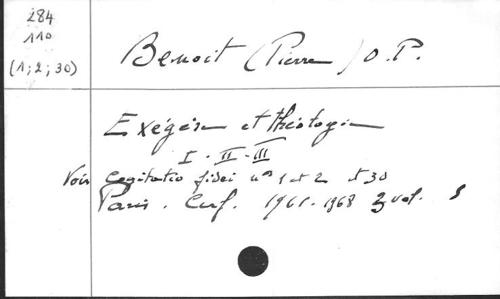 284
110
(1; 2; 30)
Benoit (Pierre) O.P.
Exégèse et théologie
I. II. III
Voir Cogitatio fidei nos 1 et 2 et 30
Paris. Cerf. 1961-1968 3 vol.